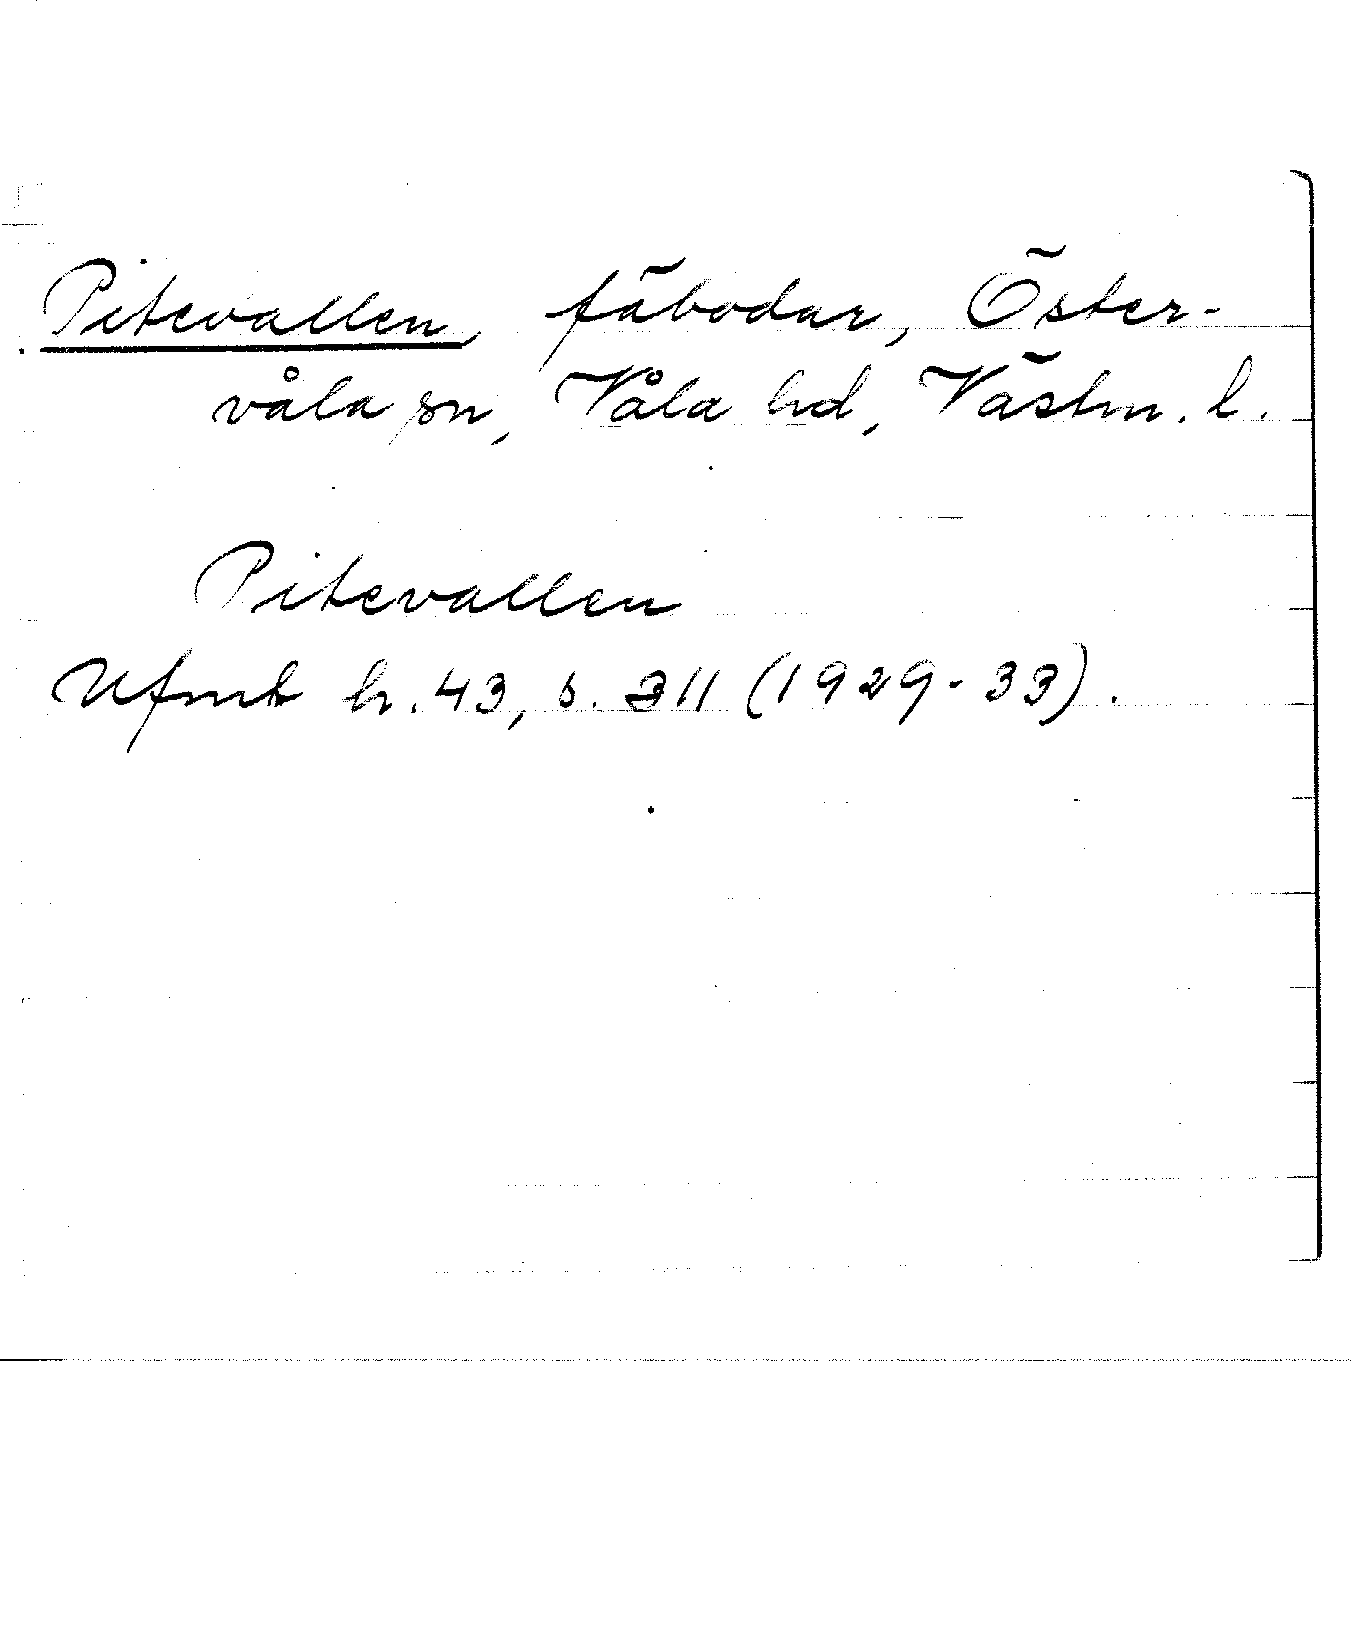 Pitevallen, fäbodar, Öster-
våla sn, Våla hd, Västm. l.
Pitevallen
Ufmt h. 43, s. 311 (1929-33).